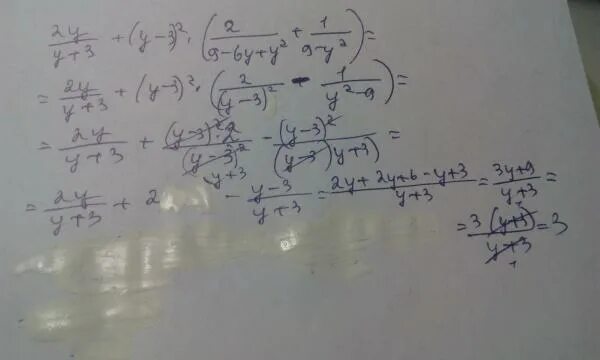 2y/(y+3) + (y-3)² · (2/(9-6y+y²) + 1/(9-y²)) =
= 2y/(y+3) + (y-3)² · (2/(y-3)² - 1/(y²-9)) =
= 2y/(y+3) + (y-3)²·2/(y-3)² - (y-3)²/((y-3)(y+3)) =
= 2y/(y+3) + 2 y+3 - (y-3)/(y+3) = (2y+2y+6-y+3)/(y+3) = (3y+9)/(y+3) =
= 3(y+3)/(y+3) = 3